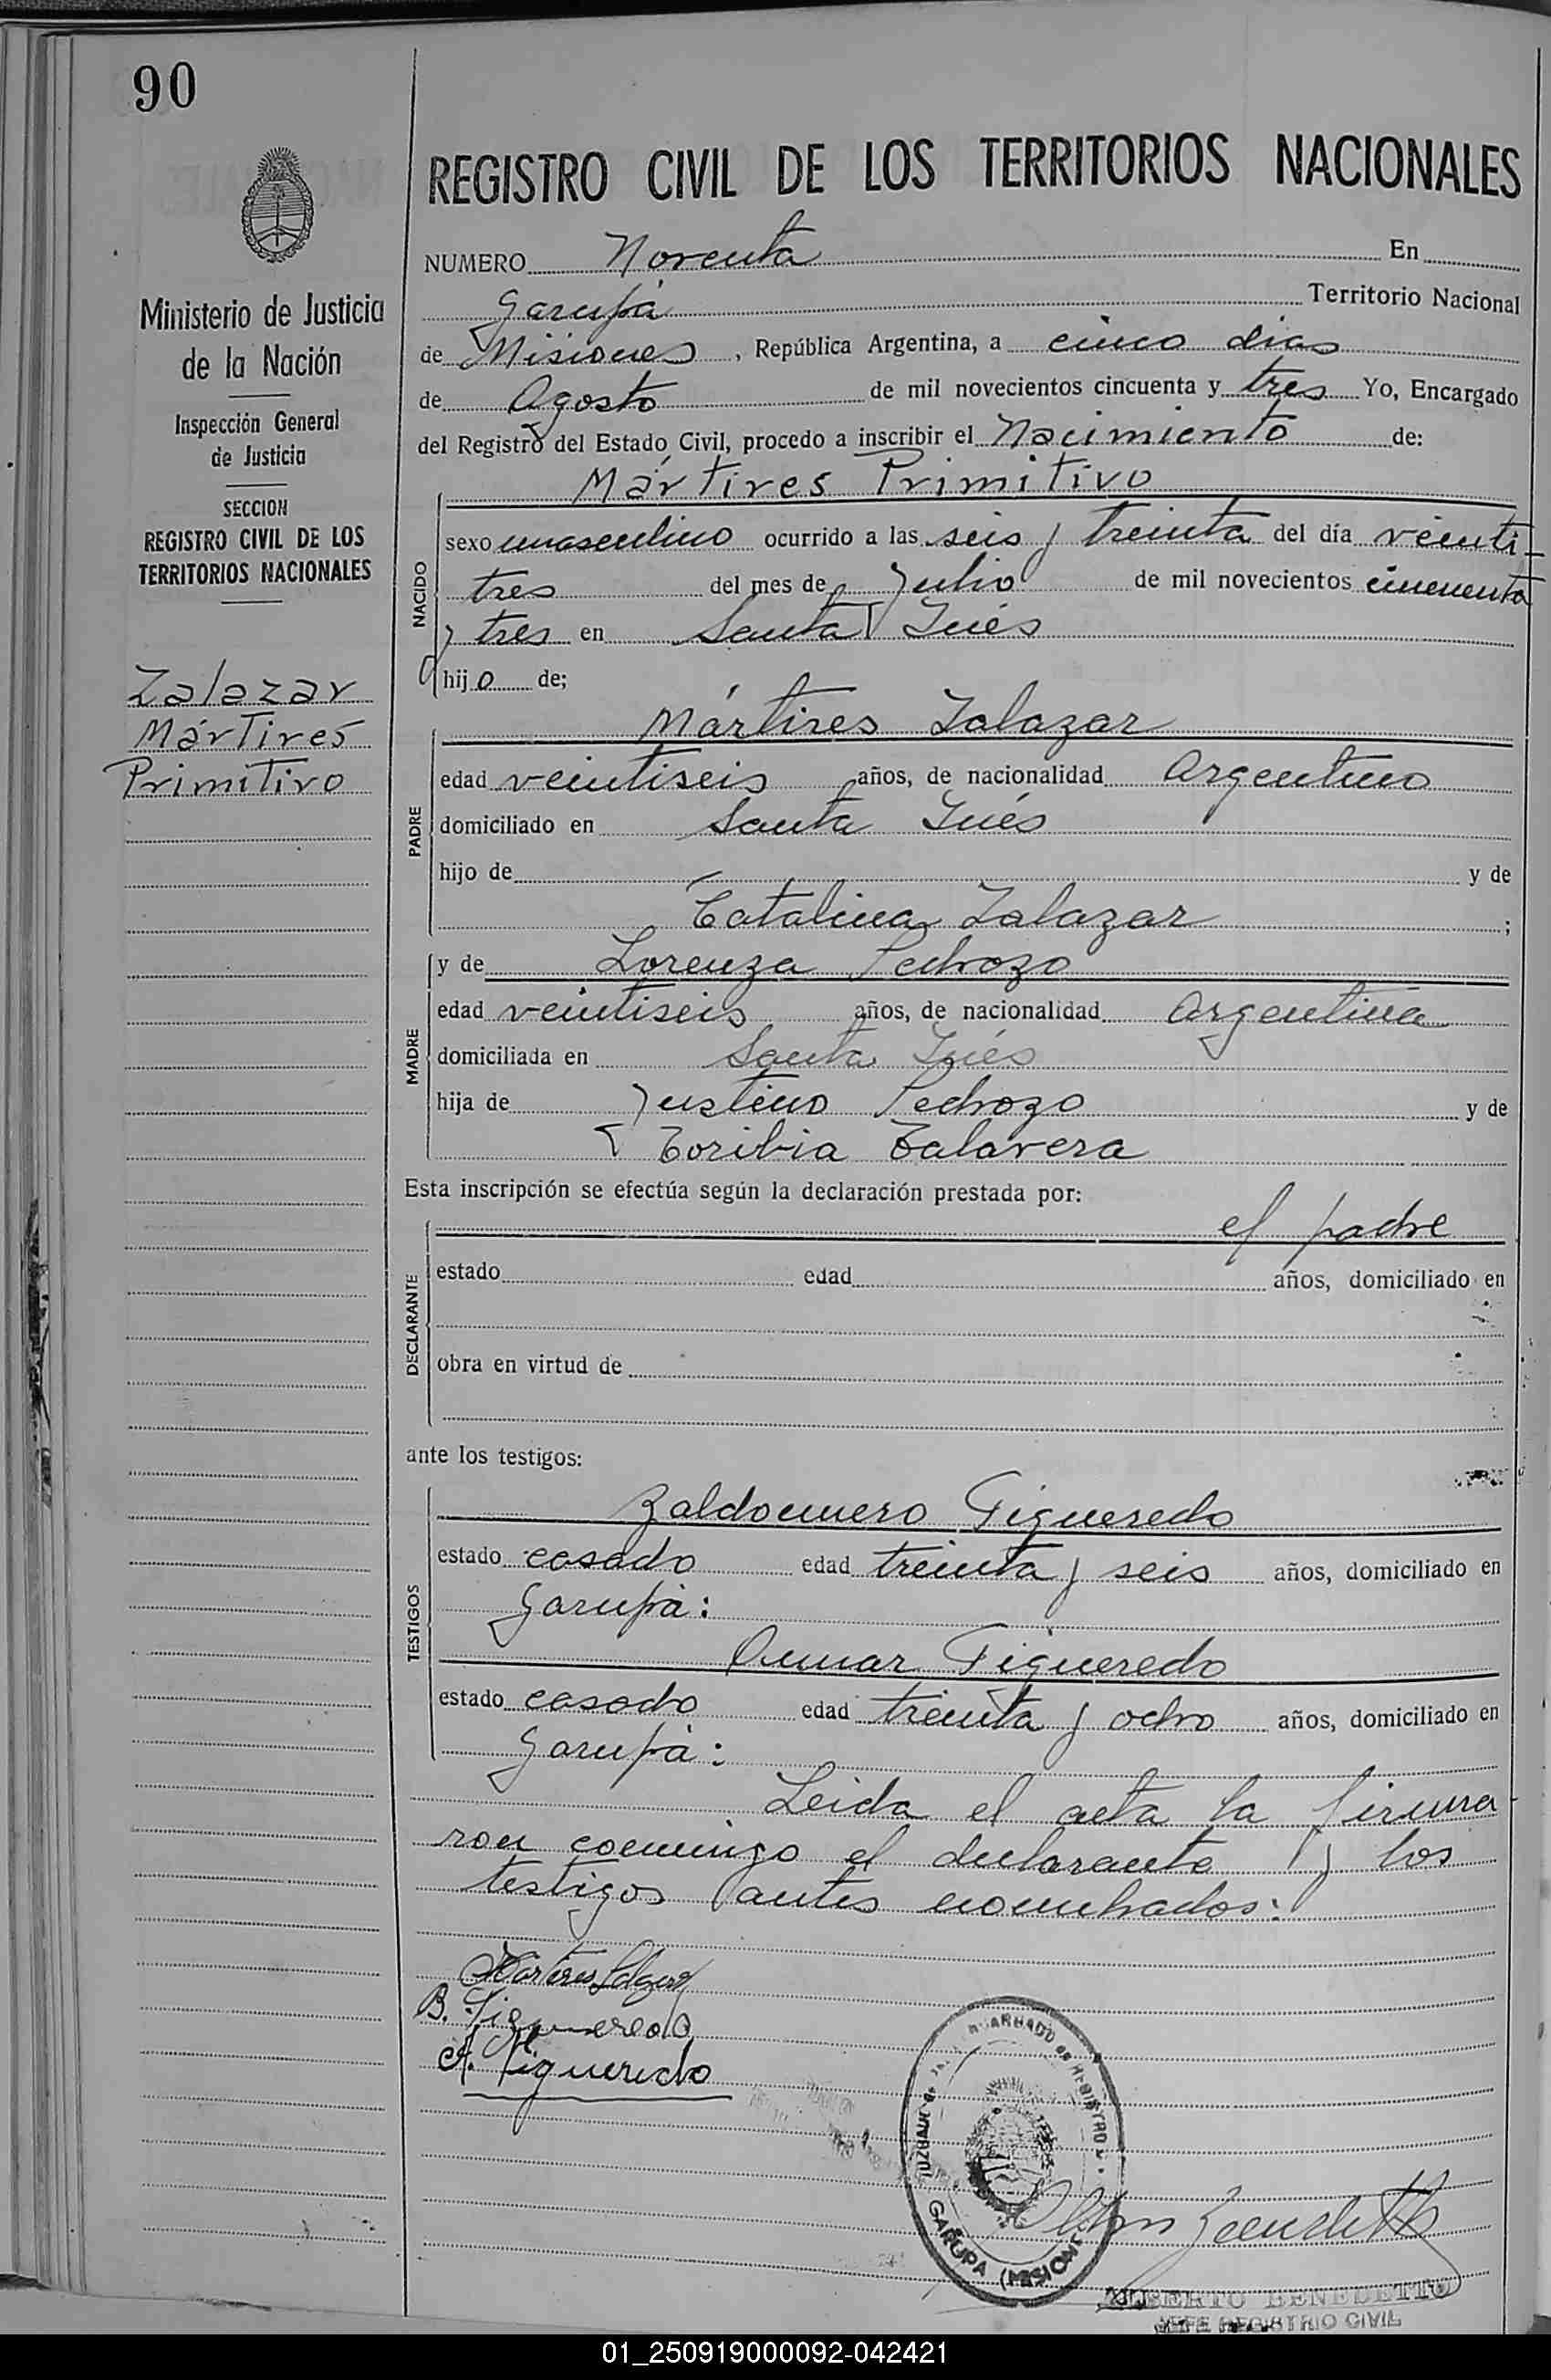 90
REGISTRO CIVIL DE LOS TERRITORIOS NACIONALES
Ministerio de Justicia
de la Nación
Inspección General
de Justicia
SECCION
REGISTRO CIVIL DE LOS
TERRITORIOS NACIONALES
Zalazar
Mártires
Primitivo
NUMERO Noventa En
Garupá Territorio Nacional
de Misiones, República Argentina, a cinco dias
de Agosto de mil novecientos cincuenta y tres Yo, Encargado
del Registro del Estado Civil, procedo a inscribir el Nacimiento de:
Mártires Primitivo
NACIDO
sexo masculino ocurrido a las seis y treinta del día veinti-
tres del mes de Julio de mil novecientos cincuenta
y tres en Santa Inés
hijo de;
PADRE
Mártires Zalazar
edad veintiseis años, de nacionalidad Argentino
domiciliado en Santa Inés
hijo de y de
Catalina Zalazar ;
MADRE
y de Lorenza Pedrozo
edad veintiseis años, de nacionalidad Argentina
domiciliada en Santa Inés
hija de Justino Pedrozo y de
Toribia Talavera
Esta inscripción se efectúa según la declaración prestada por:
DECLARANTE
el padre
estado edad años, domiciliado en
obra en virtud de
ante los testigos:
TESTIGOS
Baldomero Figueredo
estado casado edad treinta y seis años, domiciliado en
Garupá:
Figueredo
estado casado edad treinta y ocho años, domiciliado en
Garupá:
Leida el acta la firma
ron conmigo el declarante y los
testigos antes nombrados:
B. Figueredo
A. Figueredo
GARUPA (MISIONES
ALBERTO BENEDETTO
JEFE REGISTRO CIVIL
01_250919000092-042421